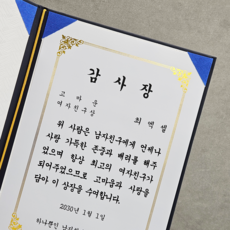 감사장
고마운
여자친구상
최백셀
위 사람은 남자친구에게 언제나
사랑 가득한 존중과 배려를 해주
었으며 항상 최고의 여자친구가
되어주었으므로 고마움과 사랑을
담아 이 상장을 수여합니다.
2030년 1월 1일
하나뿐인